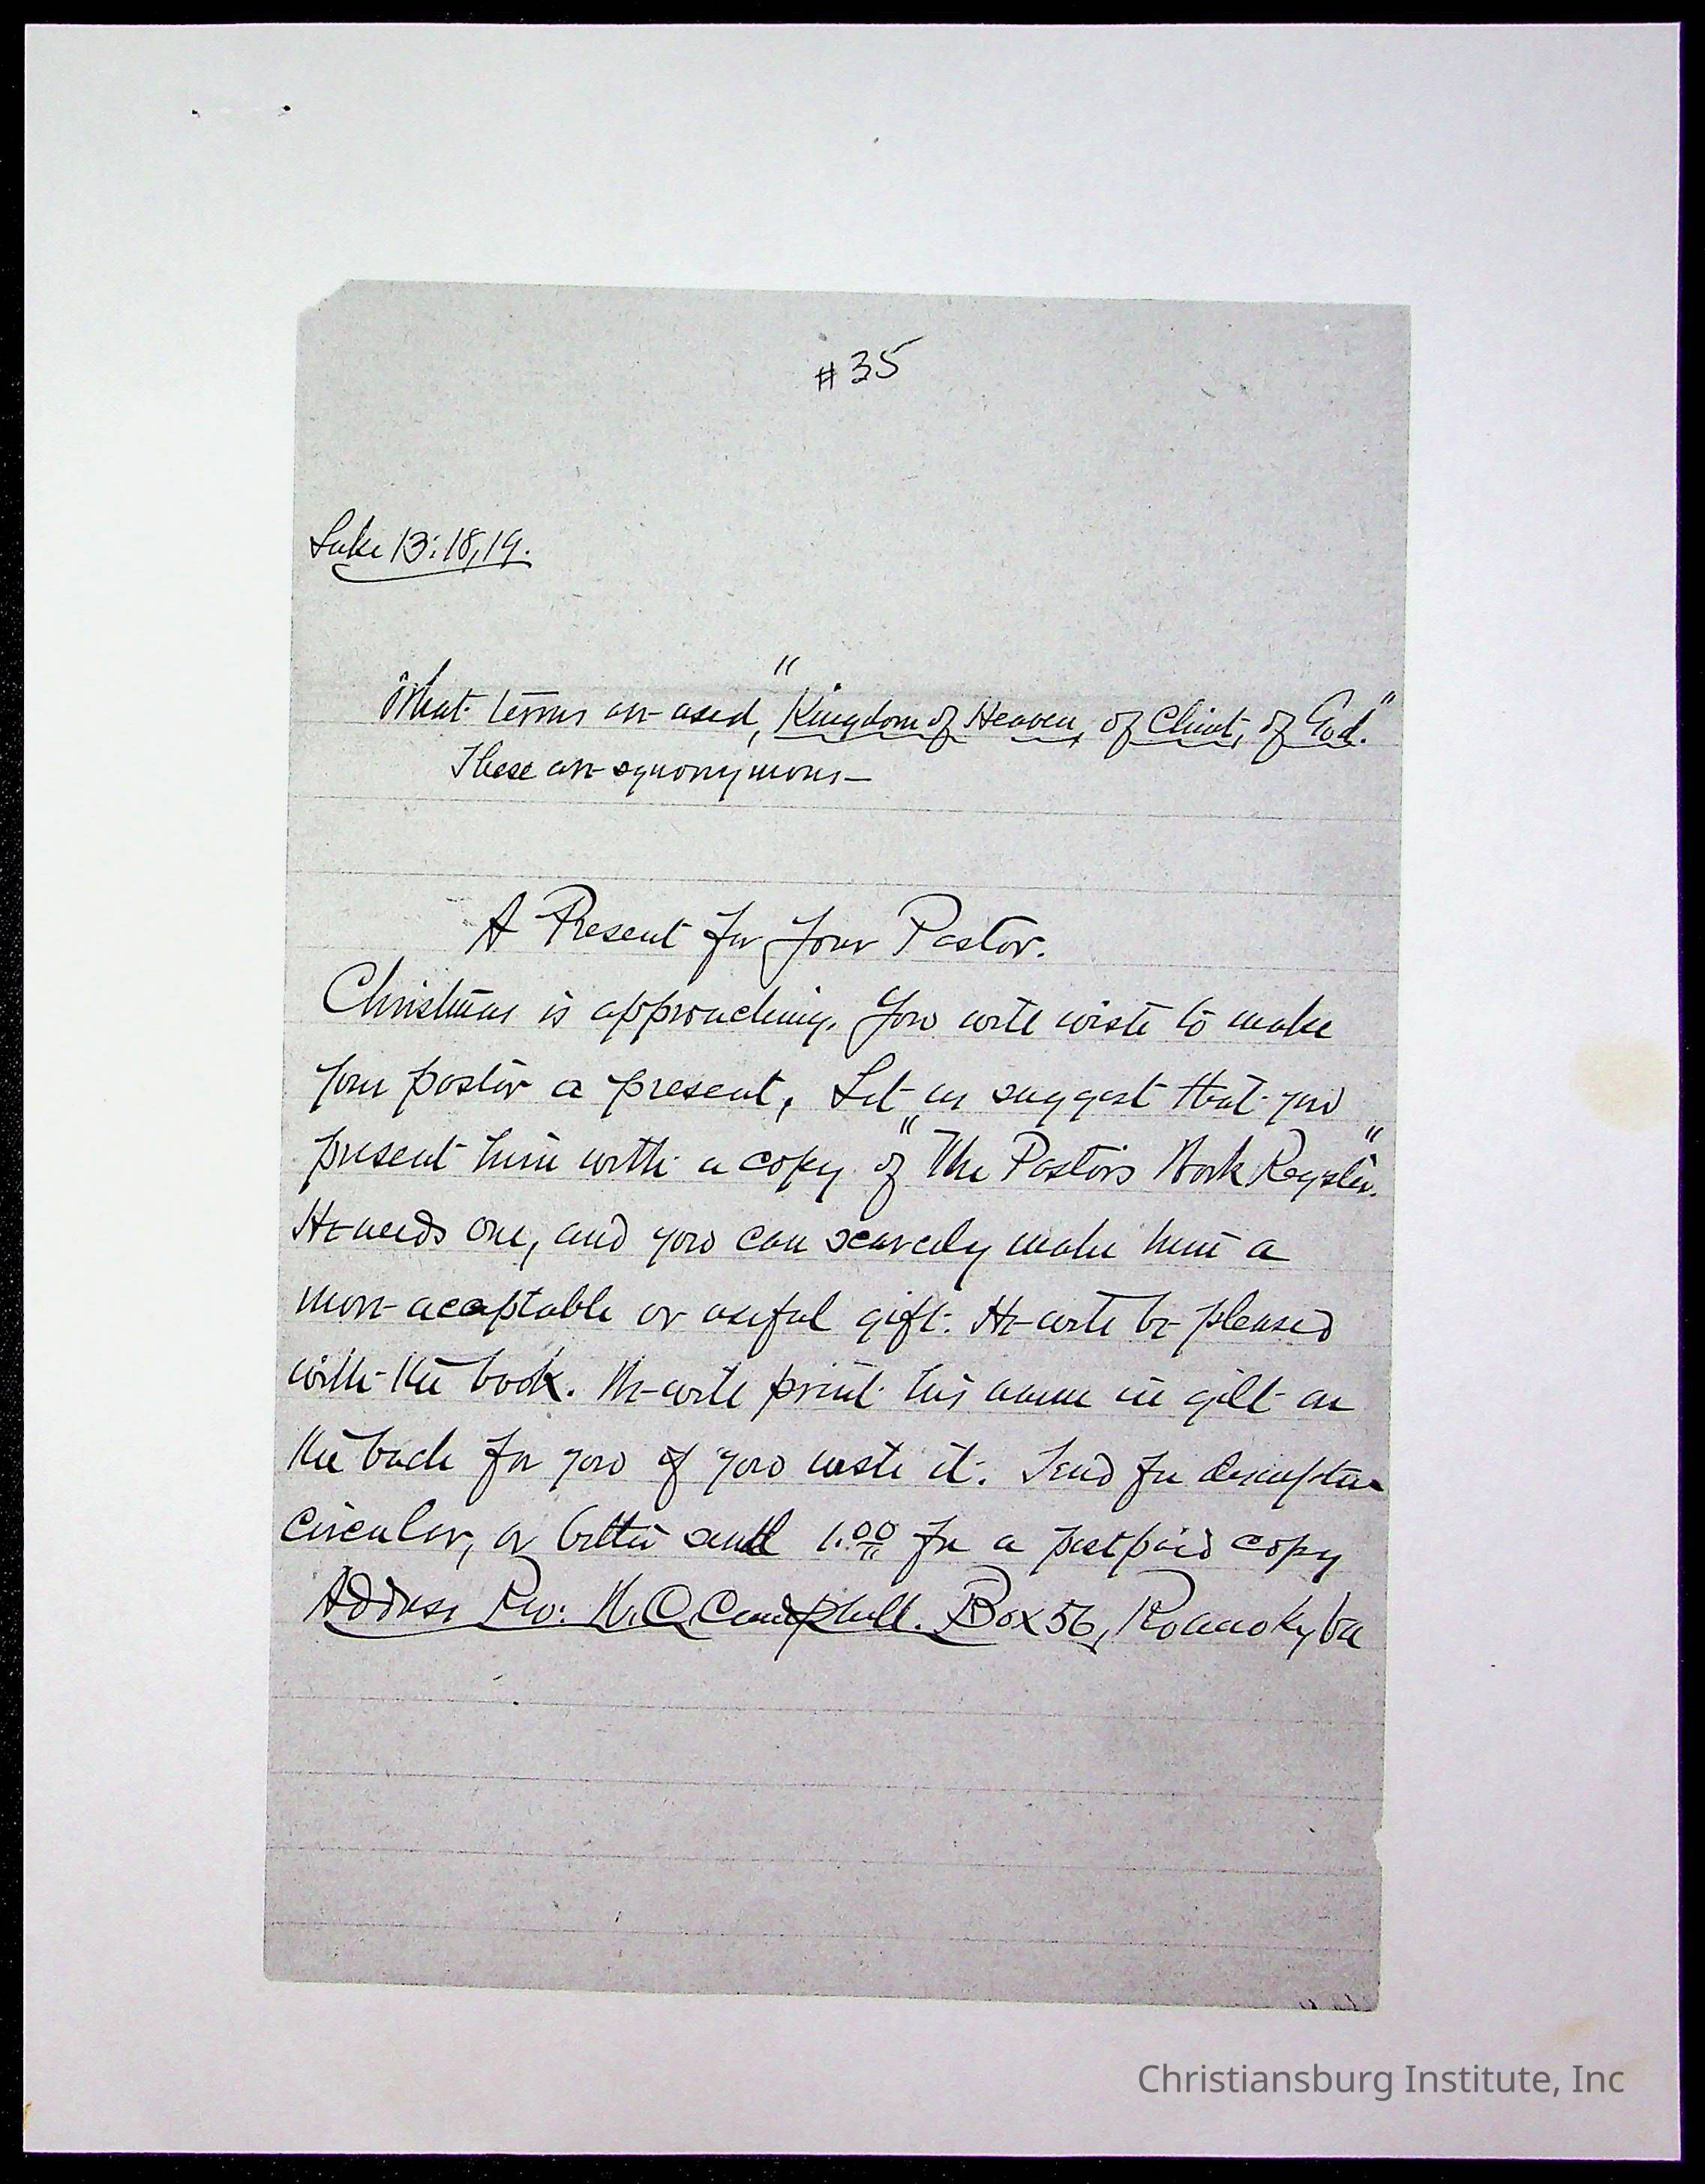 #35
Luke 13:18,19.
What terms are used, "Kingdom of Heaven, of Christ, of God."
These are synonymous—
A Present for Your Pastor.
Christmas is approaching. You will wish to make
your pastor a present, Let us suggest that you
present him with a copy of "The Pastor's Work Register."
He needs one, and you can scarcely make him a
more acceptable or useful gift. He will be pleased
with the book. We will print his name in gilt on
the back for you if you wish it. Send for descriptive
circular, or better send 1.00 for a postpaid copy
Address Rev. Campbell. Box 56, Roanoke, Va
Christiansburg Institute, Inc